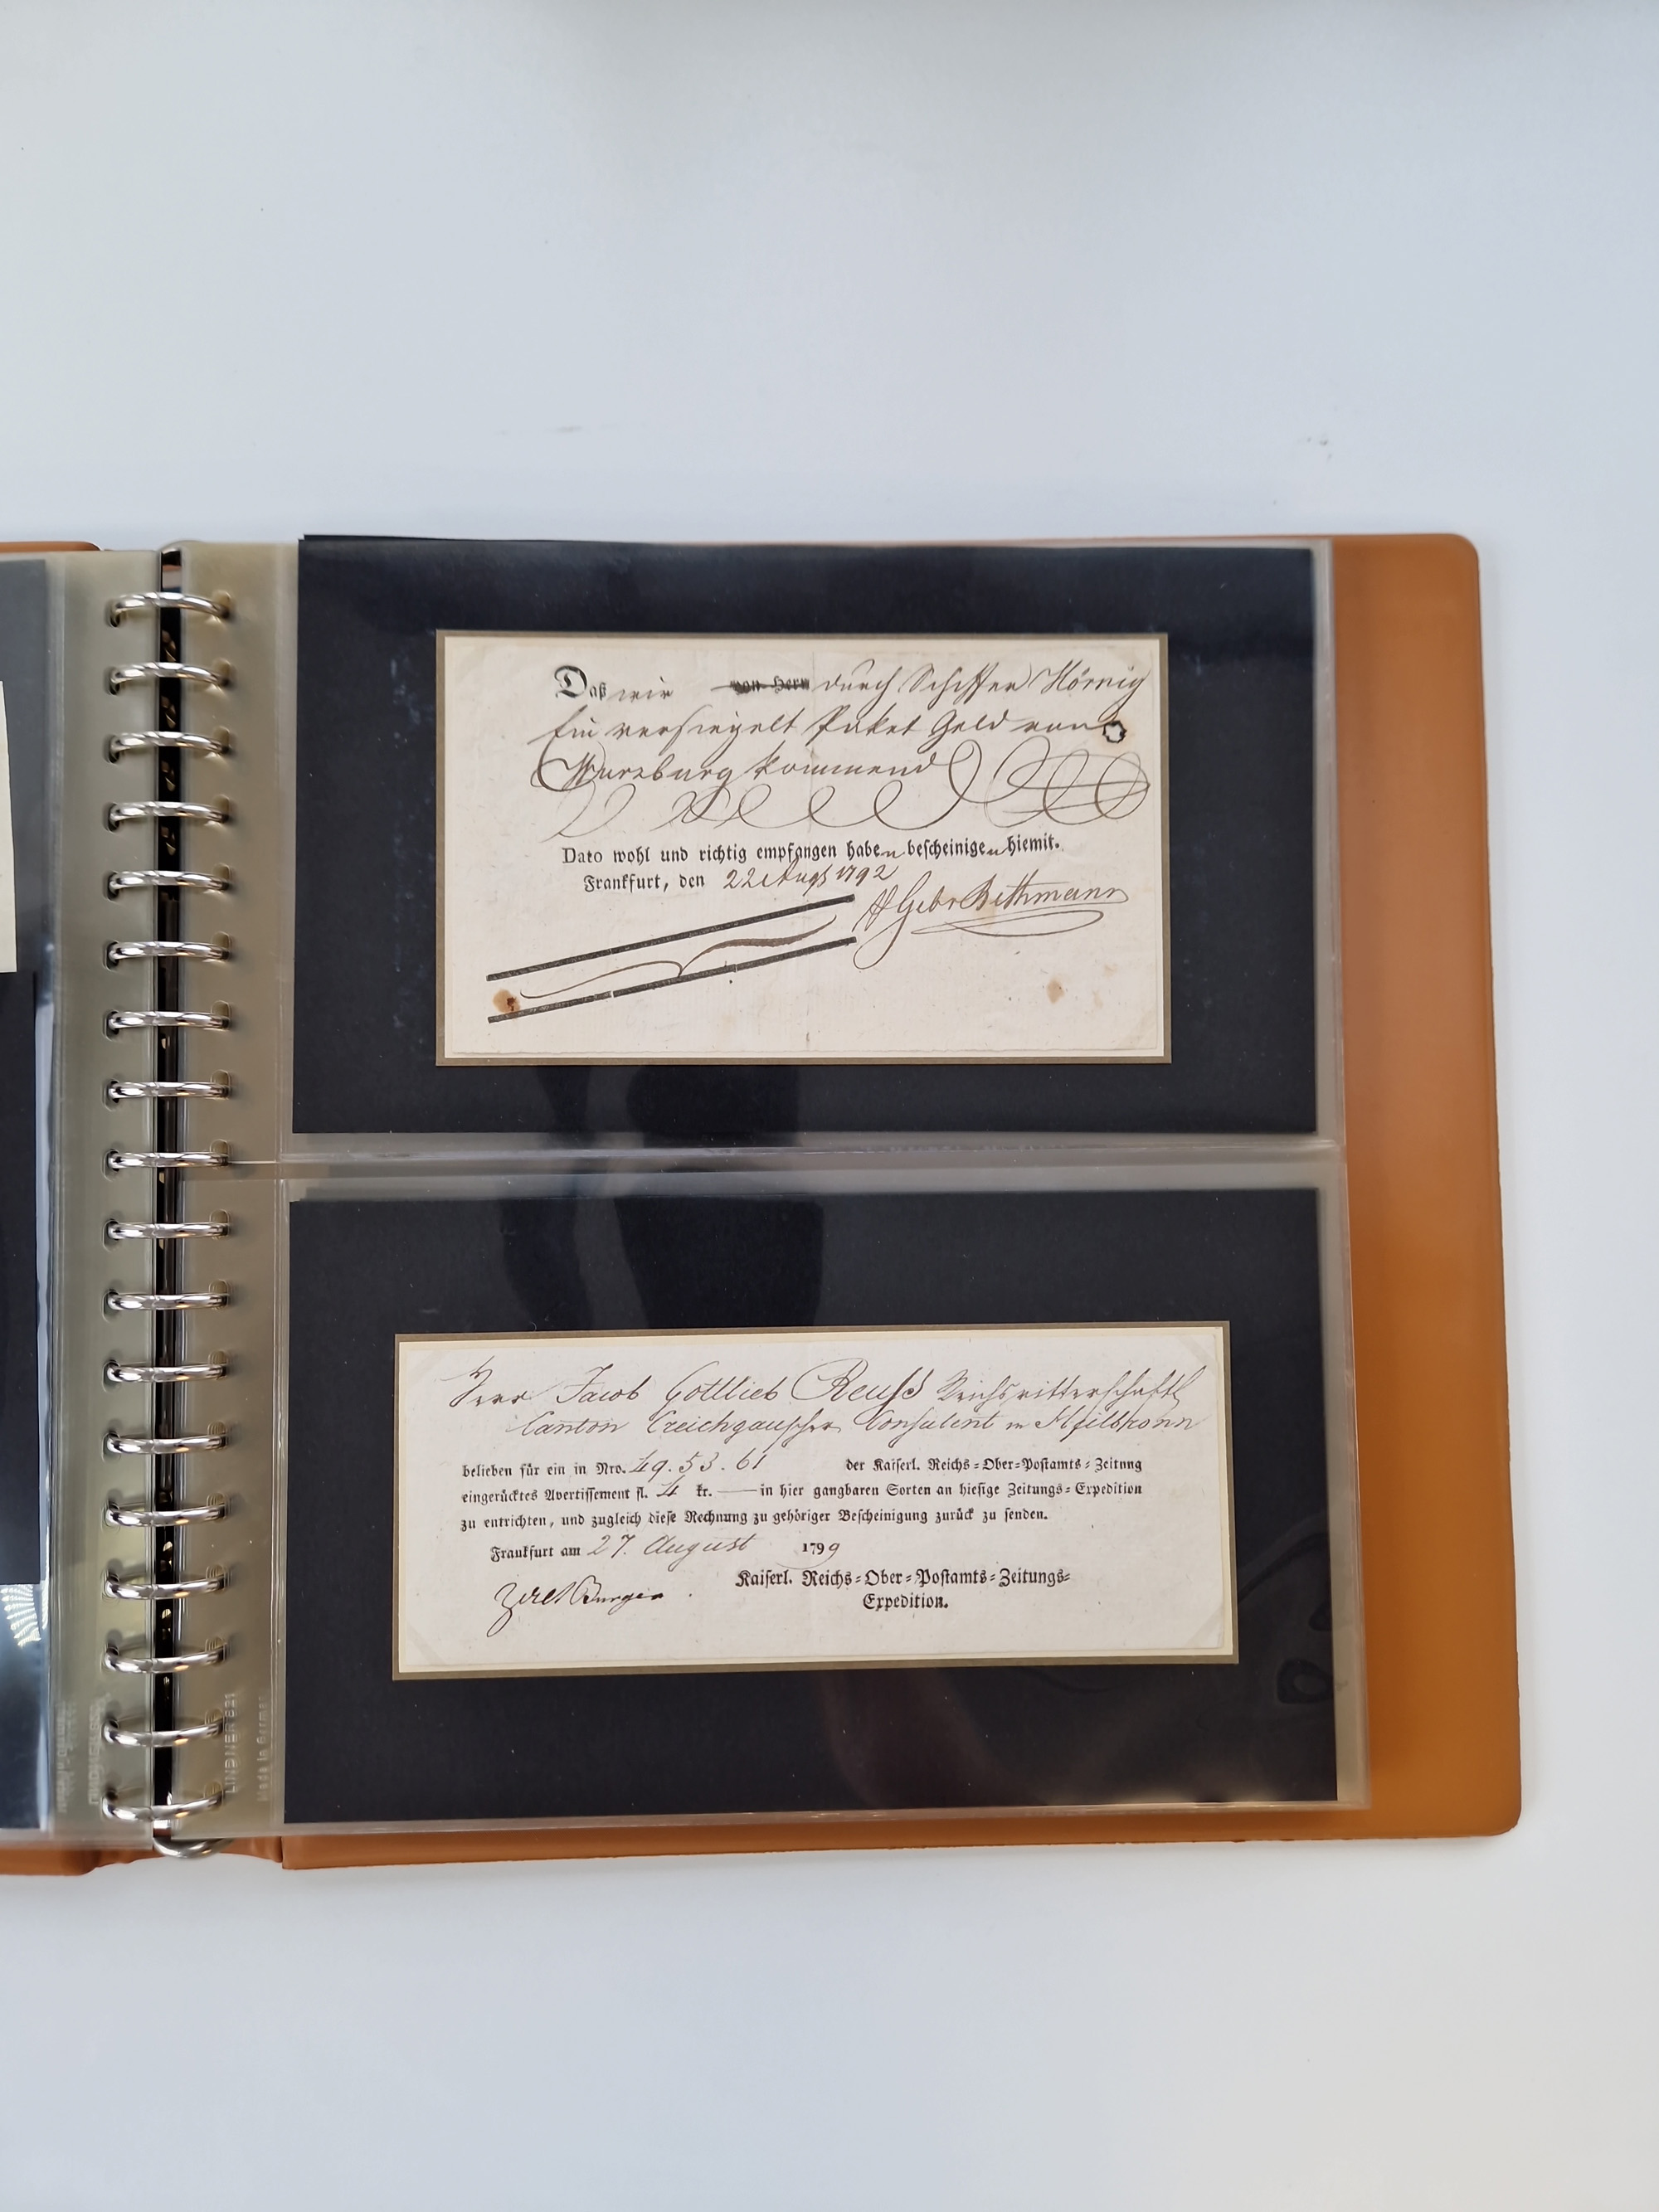 Daß wir von Herrn durch Schiffer Hörnig
Ein versiegelt Paket Geld von
Würzburg kommend
Dato wohl und richtig empfangen haben bescheinigen hiemit.
Frankfurt, den 22 Augs 1792
Gebr Bethmann
Herr Jacob Gottlieb Reuß Reichsritterschaftl
Canton Creichgauscher Consulent in Heilbronn
belieben für ein in Nro. 49. 53. 61 der Kaiserl. Reichs-Ober-Postamts-Zeitung
eingerücktes Avertissement fl. 4 kr. — in hier gangbaren Sorten an hiesige Zeitungs-Expedition
zu entrichten, und zugleich diese Rechnung zu gehöriger Bescheinigung zurück zu senden.
Frankfurt am 27. August 1799
Kaiserl. Reichs-Ober-Postamts-Zeitungs-
Expedition.
LINDNER 821
Made in Germany